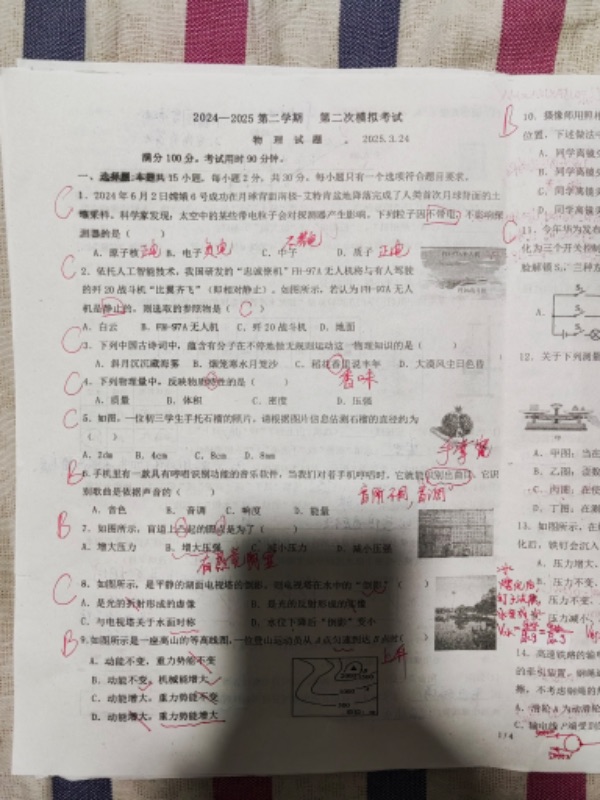 2024—2025第二学期 第二次模拟考试
物 理 试 题 。 2025.3.24
满分100分。考试用时90分钟。
一、选择题：本题共15小题，每小题2分，共30分。每小题只有一个选项符合题目要求。
C
1. 2024年6月2日嫦娥6号成功在月球背面南极-艾特肯盆地降落完成了人类首次月球背面的土
壤采样。科学家发现：太空中的某些带电粒子会对探测器产生影响，下列粒子因不带电，不影响探
测器的是（ ）
A. 原子核 正电 B. 电子 负电 C. 中子 不带电 D. 质子 正电
C
2. 依托人工智能技术，我国研发的“忠诚僚机”FH-97A无人机将与有人驾驶
的歼20战斗机“比翼齐飞”（即相对静止），如图所示，若认为FH-97A无人
机是静止的，则选取的参照物是（ C ）
A. 白云 B. FH-97A无人机 C. 歼20战斗机 D. 地面
C
3. 下列中国古诗词中，蕴含有分子在不停地做无规则运动这一物理知识的是（ ）
A. 斜月沉沉藏海雾 B. 烟笼寒水月笼沙 C. 稻花香里说丰年 D. 大漠风尘日色昏
香味
C
4. 下列物理量中，反映物质特性的是（ ）
A. 质量 B. 体积 C. 密度 D. 压强
C
5. 如图，一位初三学生手托石榴的照片，请根据图片信息估测石榴的直径约为
（ ）
A. 2dm B. 4cm C. 8cm D. 8mm
手掌宽
B
6. 手机里有一款具有哼唱识别功能的音乐软件，当我们对着手机哼唱时，它就能识别出曲目，它识
别歌曲是依据声音的（ ）
A. 音色 B. 音调 C. 响度 D. 能量
B
7. 如图所示，盲道上凸起的圆点是为了（ ）
A. 增大压力 B. 增大压强 C. 减小压力 D. 减小压强
C
8. 如图所示，是平静的湖面电视塔的倒影，则电视塔在水中的“倒影”（ ）
A. 是光的折射形成的虚像 B. 是光的反射形成的实像
C. 与电视塔关于水面对称 D. 水位下降后“倒影”变小
B
9. 如图所示是一座高山的等高线图，一位登山运动员从A点匀速到达B点时（ ）
上升
A. 动能不变，重力势能不变
B. 动能不变，机械能增大
C. 动能增大，重力势能不变
D. 动能增大，重力势能增大
B
10. 摄像师用照相
位置，下述做法中
A. 同学离镜头
B. 同学离镜头
C. 同学离镜头
D. 同学离镜头
C
11. 今年华为发布
化为三个开关控制
脸解锁S₃，三种方
A.
12. 关于下列测量
A. 甲图：当在
B. 乙图：读数
C. 丙图：在使
D. 丁图：在测
13. 如图所示，在
化后，铁钉会沉入
A. 压力增大，
B. 压力不变，
C. 压力不变，
D. 压力减小，
14. 高速铁路的输电
的牵引装置。钢绳通
擦，不考虑钢绳的
A. 滑轮A为动滑轮
C. 输电线P端受到
1 / 4